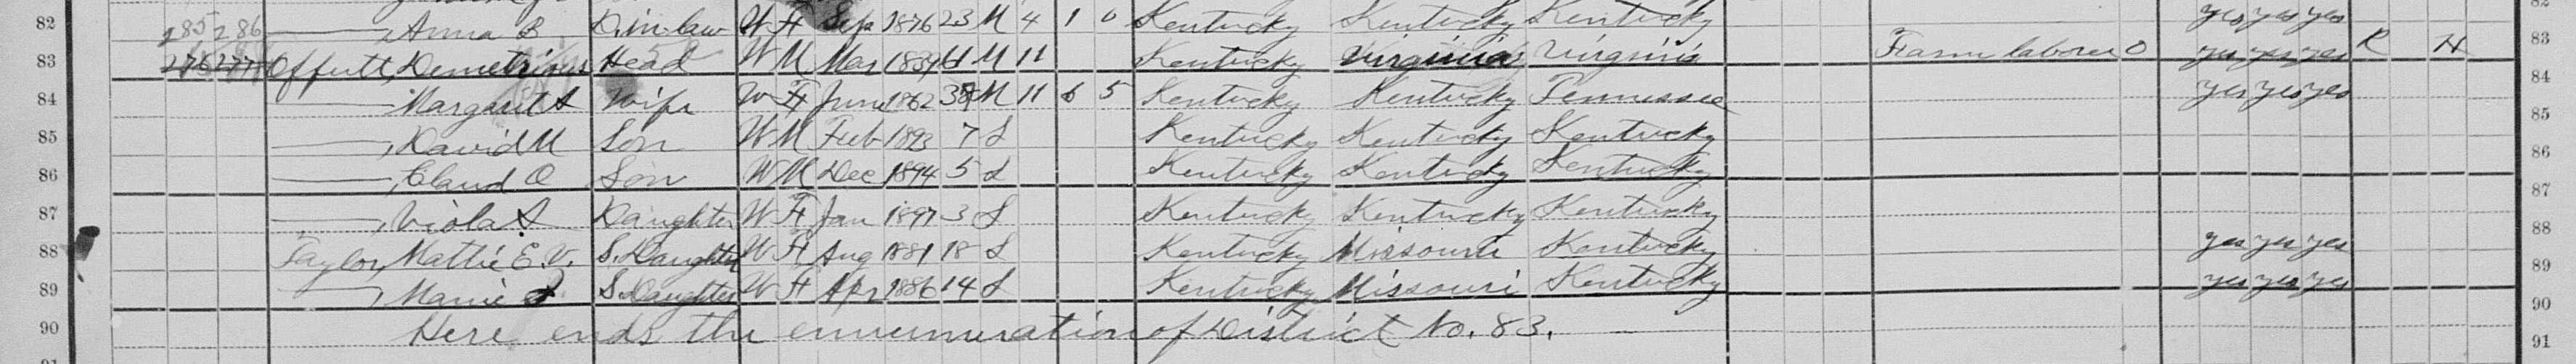 82 285 286 ——, Anna B D.in-law W F Sep 1876 23 M 4 1 0 Kentucky Kentucky Kentucky yes yes yes 82
83 276 277 Offutt, Demetrious Head W M Mar 1839 61 M 11 Kentucky Virginia Virginia Farm laborer 0 yes yes yes R H 83
84 ——, Margaret A Wife W F June 1862 38 M 11 6 5 Kentucky Kentucky Tennessee yes yes yes 84
85 ——, David M Son W M Feb 1893 7 S Kentucky Kentucky Kentucky 85
86 ——, Claud O Son W M Dec 1894 5 S Kentucky Kentucky Kentucky 86
87 ——, Viola A Daughter W F Jan 1897 3 S Kentucky Kentucky Kentucky 87
88 Taylor, Mattie E.V. S.Daughter W F Aug 1881 18 S Kentucky Missouri Kentucky yes yes yes 88
89 ——, Mamie S.Daughter W F Apr 1886 14 S Kentucky Missouri Kentucky yes yes yes 89
90 Here ends the enumeration of District No. 83. 90
91